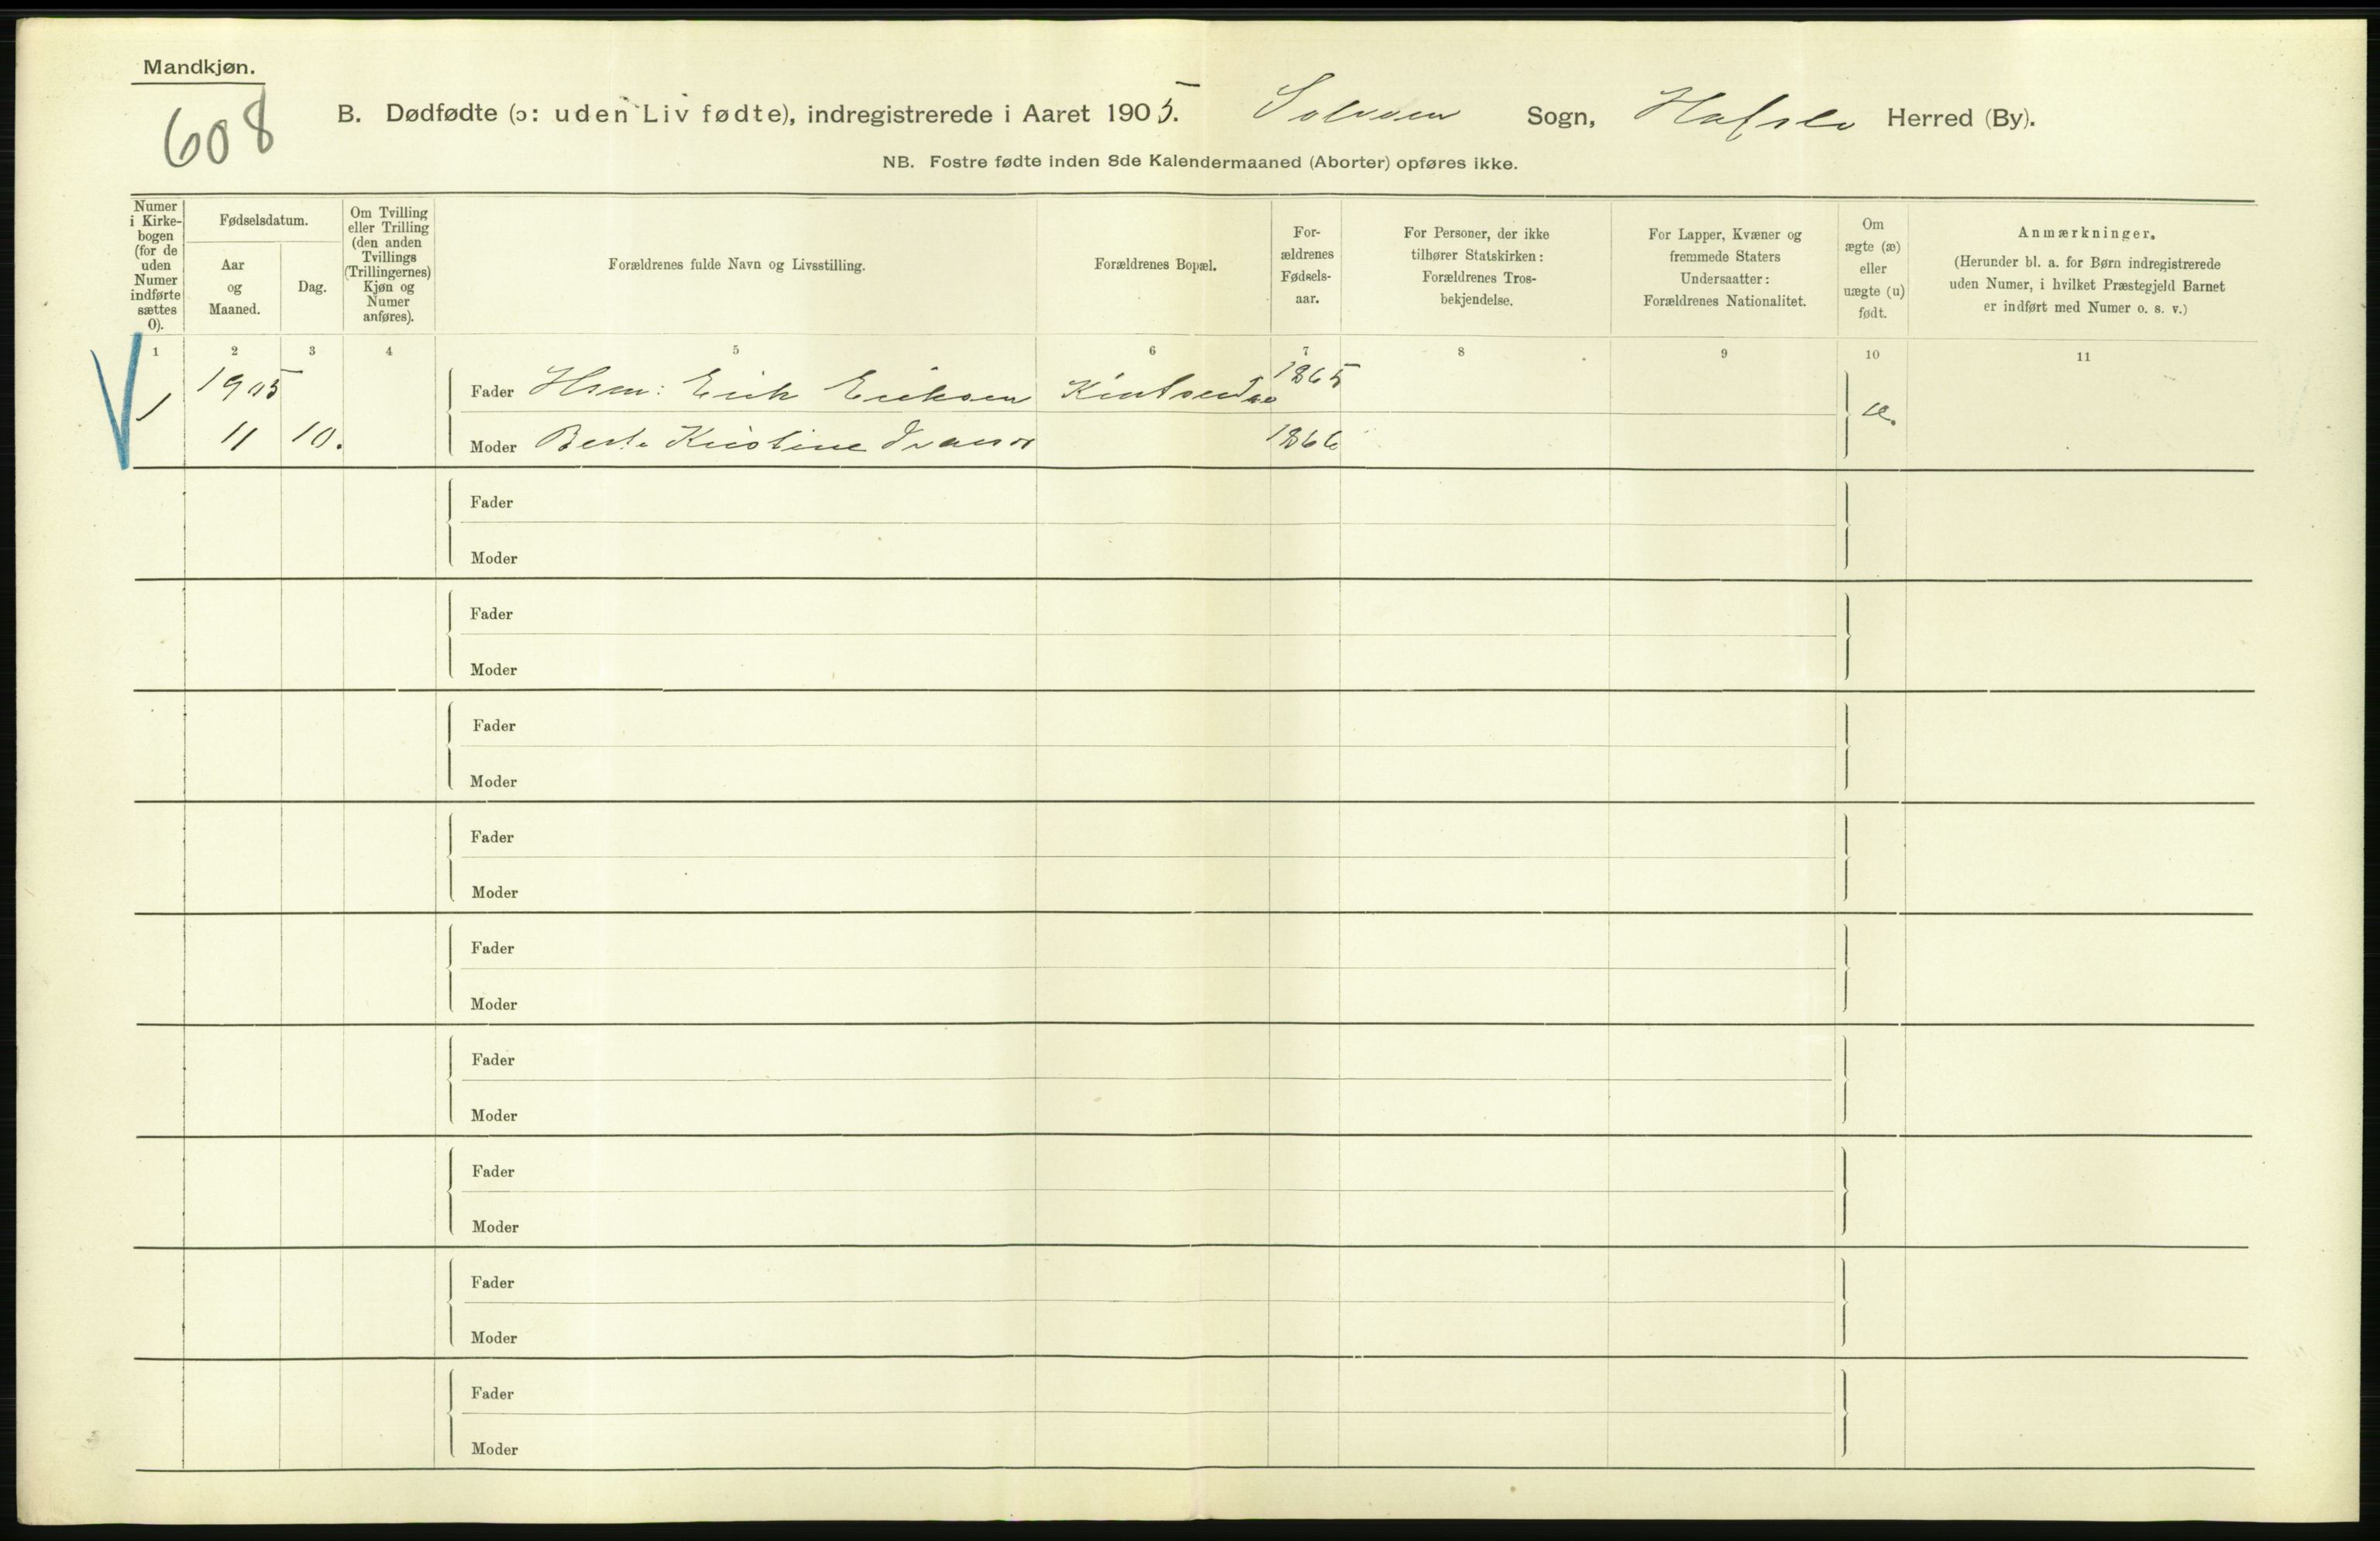 Mandkjøn.
608
B. Dødfødte (ɔ: uden Liv fødte), indregistrerede i Aaret 1905. Solvorn Sogn, Hafslo Herred (By).
NB. Fostre fødte inden 8de Kalendermaaned (Aborter) opføres ikke.
Numer i Kirke-bogen (for de uden Numer indførte sættes 0).
Fødselsdatum.
Aar og Maaned.
Dag.
Om Tvilling eller Trilling (den anden Tvillings (Trillingernes) Kjøn og Numer anføres).
Forældrenes fulde Navn og Livsstilling.
Forældrenes Bopæl.
For-ældrenes Fødsels-aar.
For Personer, der ikke tilhører Statskirken: Forældrenes Tros-bekjendelse.
For Lapper, Kvæner og fremmede Staters Undersaatter: Forældrenes Nationalitet.
Om ægte (æ) eller uægte (u) født.
Anmærkninger.
(Herunder bl. a. for Børn indregistrerede uden Numer, i hvilket Præstegjeld Barnet er indført med Numer o. s. v.)
1 2 3 4 5 6 7 8 9 10 11
1 1905 Fader Hsm: Erik Eriksen 1865 æ.
11 10. Moder Kristine 1866
Fader
Moder
Fader
Moder
Fader
Moder
Fader
Moder
Fader
Moder
Fader
Moder
Fader
Moder
Fader
Moder
Fader
Moder